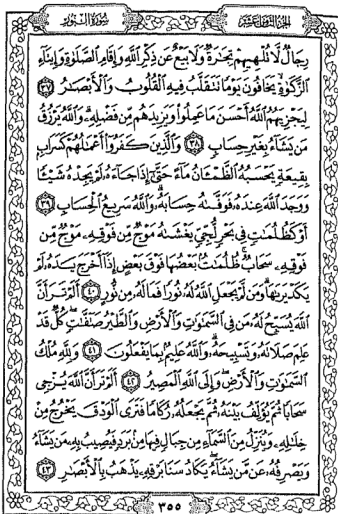 الجزء الثامن عشر سورة النور
رِجَالٌ لَّا تُلْهِيهِمْ تِجَٰرَةٌ وَلَا بَيْعٌ عَن ذِكْرِ ٱللَّهِ وَإِقَامِ ٱلصَّلَوٰةِ وَإِيتَآءِ
ٱلزَّكَوٰةِ يَخَافُونَ يَوْمًا تَتَقَلَّبُ فِيهِ ٱلْقُلُوبُ وَٱلْأَبْصَٰرُ ٣٧
لِيَجْزِيَهُمُ ٱللَّهُ أَحْسَنَ مَا عَمِلُوا۟ وَيَزِيدَهُم مِّن فَضْلِهِۦ وَٱللَّهُ يَرْزُقُ
مَن يَشَآءُ بِغَيْرِ حِسَابٍ ٣٨ وَٱلَّذِينَ كَفَرُوٓا۟ أَعْمَٰلُهُمْ كَسَرَابٍۭ
بِقِيعَةٍ يَحْسَبُهُ ٱلظَّمْـَٔانُ مَآءً حَتَّىٰٓ إِذَا جَآءَهُۥ لَمْ يَجِدْهُ شَيْـًٔا
وَوَجَدَ ٱللَّهَ عِندَهُۥ فَوَفَّىٰهُ حِسَابَهُۥ وَٱللَّهُ سَرِيعُ ٱلْحِسَابِ ٣٩
أَوْ كَظُلُمَٰتٍ فِى بَحْرٍ لُّجِّىٍّ يَغْشَىٰهُ مَوْجٌ مِّن فَوْقِهِۦ مَوْجٌ مِّن
فَوْقِهِۦ سَحَابٌ ظُلُمَٰتٌۢ بَعْضُهَا فَوْقَ بَعْضٍ إِذَآ أَخْرَجَ يَدَهُۥ لَمْ
يَكَدْ يَرَىٰهَا وَمَن لَّمْ يَجْعَلِ ٱللَّهُ لَهُۥ نُورًا فَمَا لَهُۥ مِن نُّورٍ ٤٠ أَلَمْ تَرَ أَنَّ
ٱللَّهَ يُسَبِّحُ لَهُۥ مَن فِى ٱلسَّمَٰوَٰتِ وَٱلْأَرْضِ وَٱلطَّيْرُ صَٰٓفَّٰتٍ كُلٌّ قَدْ
عَلِمَ صَلَاتَهُۥ وَتَسْبِيحَهُۥ وَٱللَّهُ عَلِيمٌۢ بِمَا يَفْعَلُونَ ٤١ وَلِلَّهِ مُلْكُ
ٱلسَّمَٰوَٰتِ وَٱلْأَرْضِ وَإِلَى ٱللَّهِ ٱلْمَصِيرُ ٤٢ أَلَمْ تَرَ أَنَّ ٱللَّهَ يُزْجِى
سَحَابًا ثُمَّ يُؤَلِّفُ بَيْنَهُۥ ثُمَّ يَجْعَلُهُۥ رُكَامًا فَتَرَى ٱلْوَدْقَ يَخْرُجُ مِنْ
خِلَٰلِهِۦ وَيُنَزِّلُ مِنَ ٱلسَّمَآءِ مِن جِبَالٍ فِيهَا مِنۢ بَرَدٍ فَيُصِيبُ بِهِۦ مَن يَشَآءُ
وَيَصْرِفُهُۥ عَن مَّن يَشَآءُ يَكَادُ سَنَا بَرْقِهِۦ يَذْهَبُ بِٱلْأَبْصَٰرِ ٤٣
٣٥٥